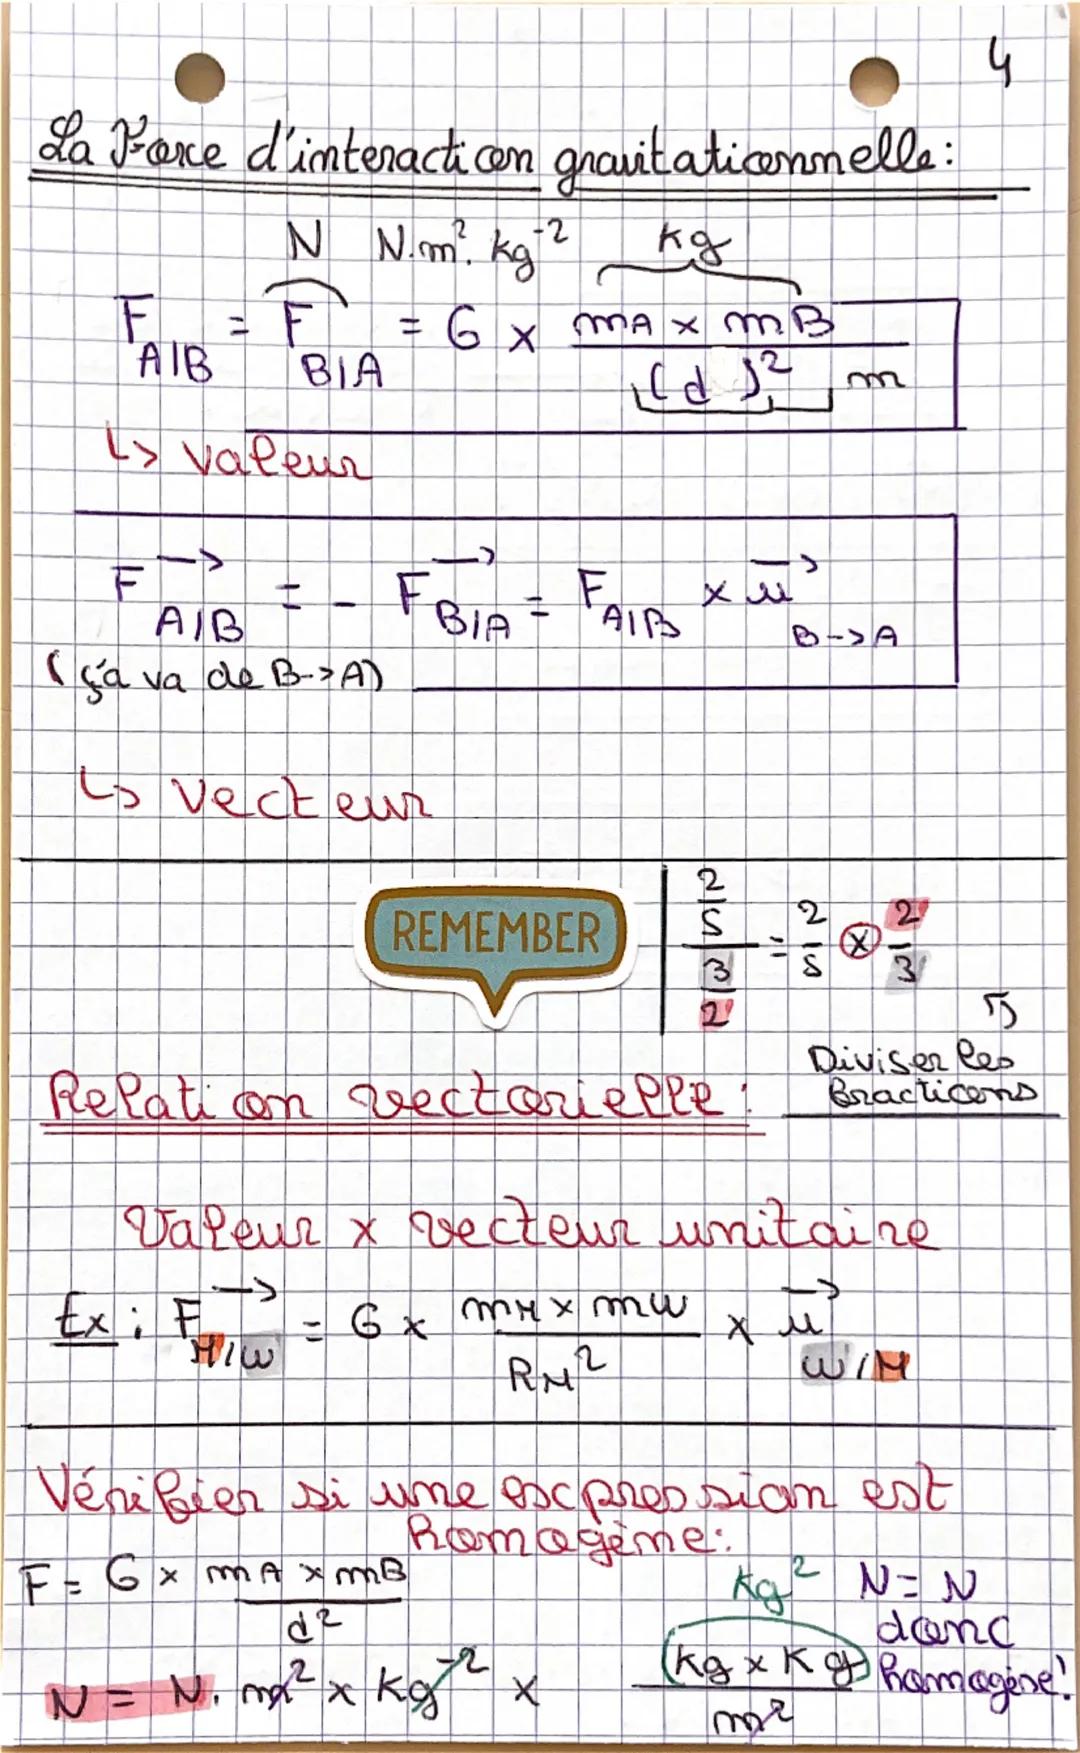 4
La Force d'interaction gravitationnelle:
N N.m². kg⁻² kg
F A/B = F B/A = G x mA x mB / (d)² m
↳ valeur
F→ A/B = - F→ B/A = F A/B x u→ B->A
(ça va de B->A)
↳ vecteur
REMEMBER
2/5 / 3/2 = 2/5 x 2/3
Diviser les
fractions
Relation vectorielle:
Valeur x vecteur unitaire
Ex: F→ M/W = G x mM x mW / RM² x u→ W/M
Vérifier si une expression est
homogène:
F = G x mA x mB / d²
kg² N = N
donc
homogène!
N = N. m² x kg⁻² x kg x kg / m²